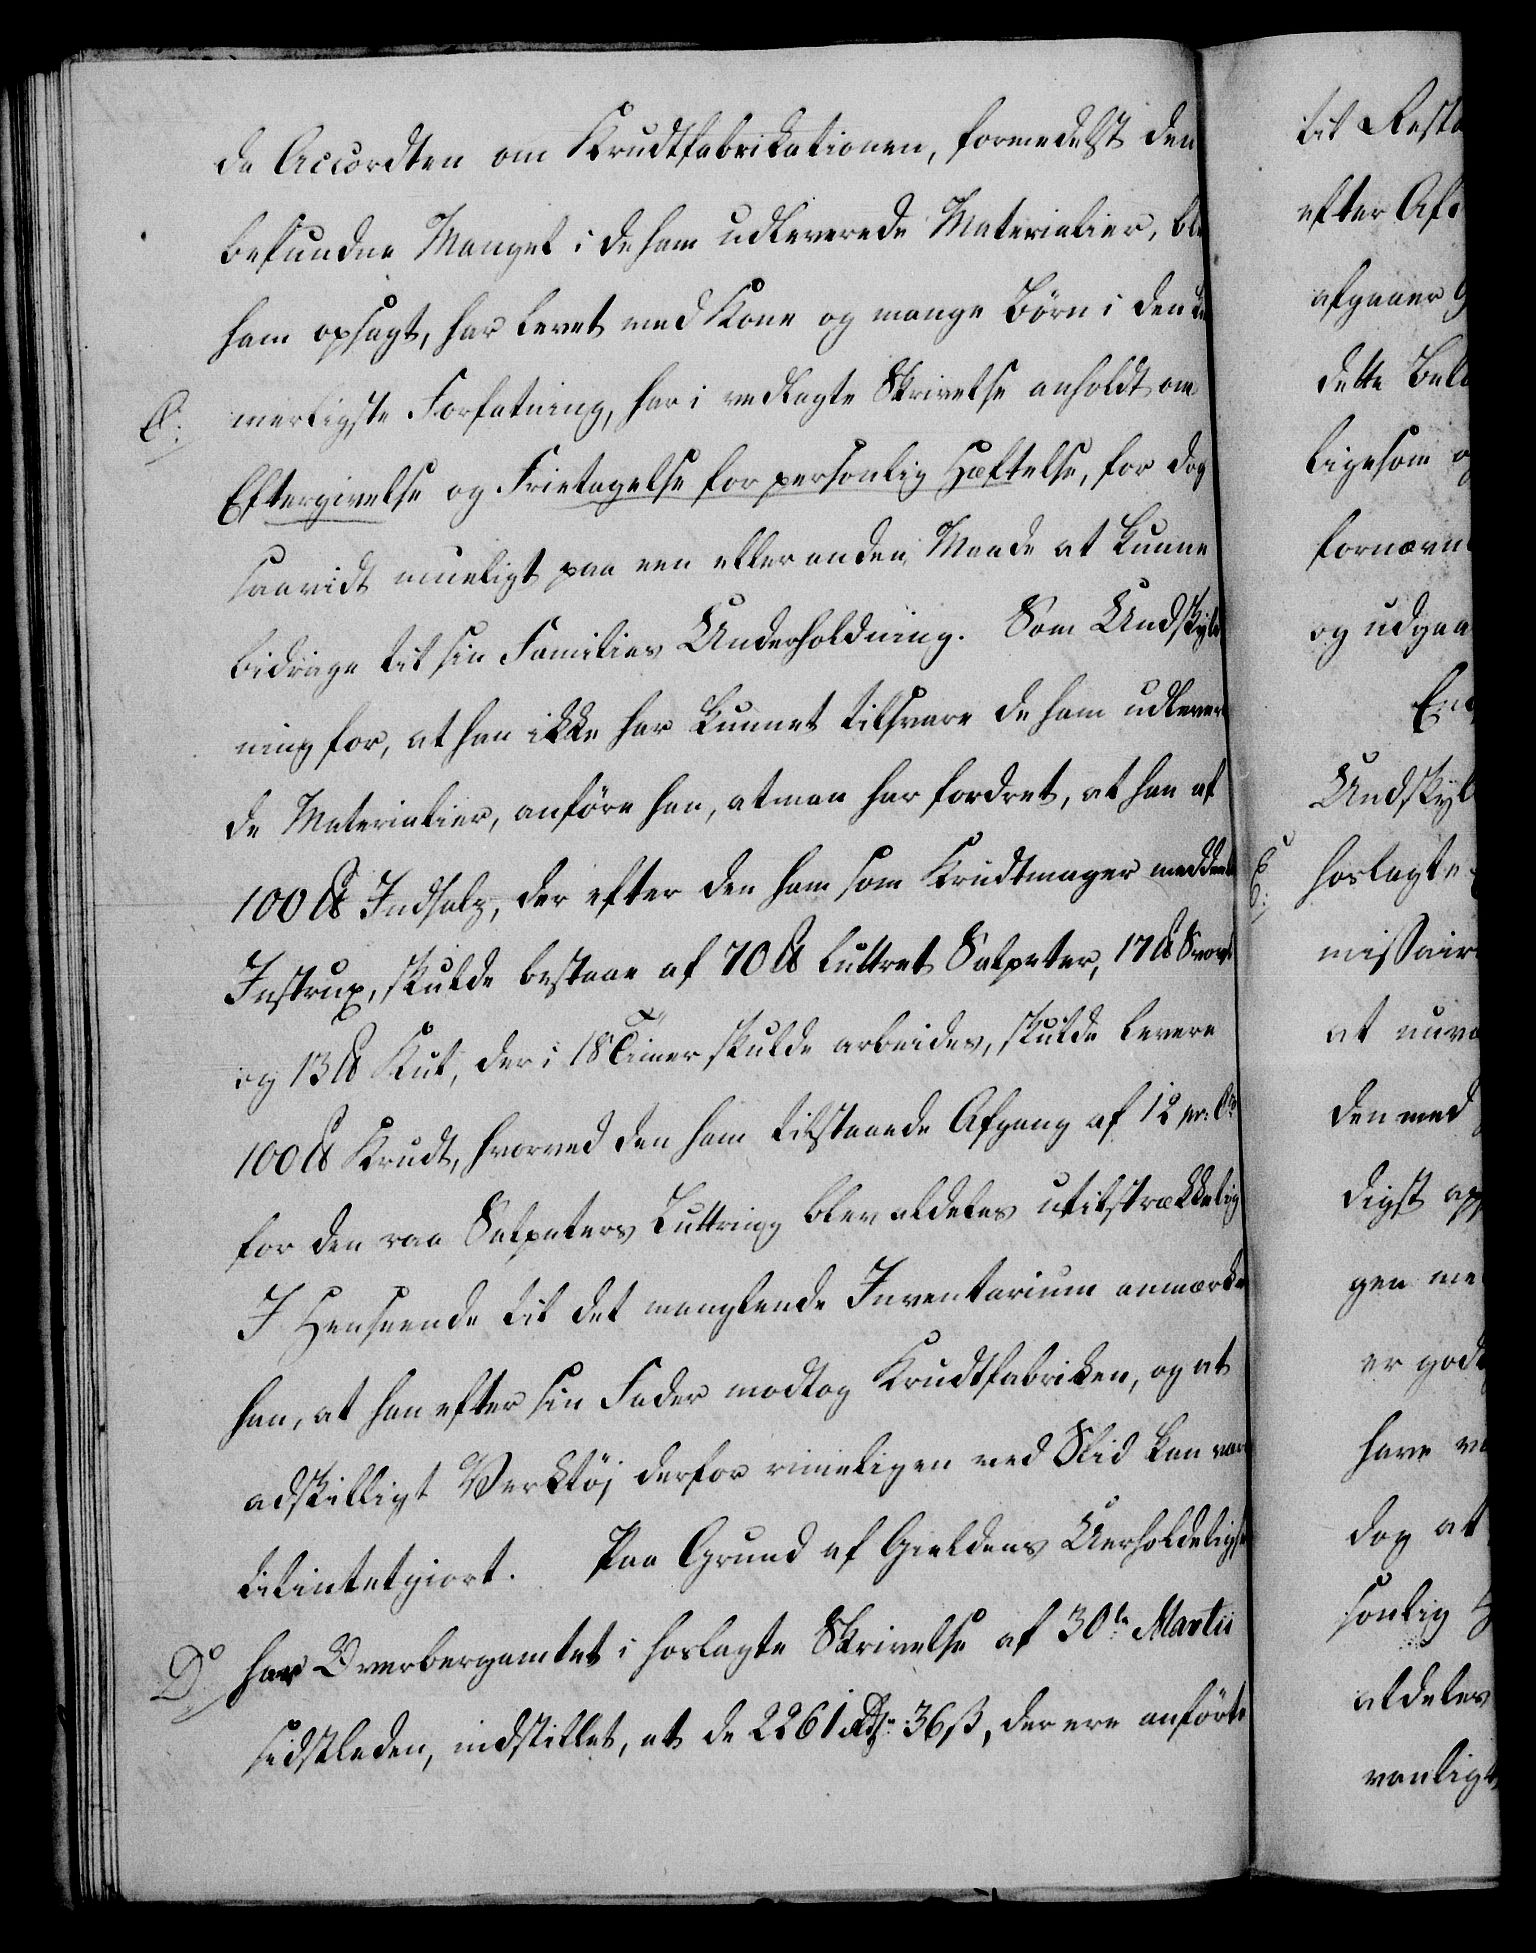 de Accordten om Krudtfabrikationen, formedelst den
befundne Mangel i de ham udleverede Materialier, ble
ham opsagt, har levet med Kone og mange Børn i den
C: merligste Forfatning, har i vedlagte Skrivelse anholdt om
Eftergivelse og Frietagelse for personlig Hæftelse, for dog
saavidt mueligt paa een eller anden Maade at kunne
bidrage til sin Families Underholdning. Som Undskyld
ning for, at han ikke har kunnet tilsvare de ham udlever
de Materialier, anføre han, at man har fordret, at han af
100 ℔ Indsalz, der efter den ham som Krudtmager meddeelte
Instrux, skulde bestaae af 70 ℔ luttret Salpeter, 17 ℔ Svovl
og 13 ℔ Kul, der i 18 Timer skulde arbeides, skulde levere
100 ℔ Krudt, hvorved den ham tilstaaede Afgang af 12 pr: Ct
for den raa Salpeters Luttring blev aldeles utilstrækkelig
I Henseende til det manglende Inventarium anmærke
han, at han efter sin Fader modtog Krudtfabriken, og at
adskilligt Verktøj derfor rimeligen ved Slid kan vær
tilintetgiort. Paa Grund af Gieldens Uerholdelighe
D: har Overbergamtet i hoslagte Skrivelse af 30te Martii
sidstleden, indstillet, at de 2261 Rdr 36 ß, der ere anførte
til Resta
efter Afs
afgaaer
dette Bel
ligesom og
fornævn
og udgaa
En
Undskyl
E: hoslagte
missair
at
den med
digst
gen me
er godt
have
dog at
sonlig
aldeles
vanligt